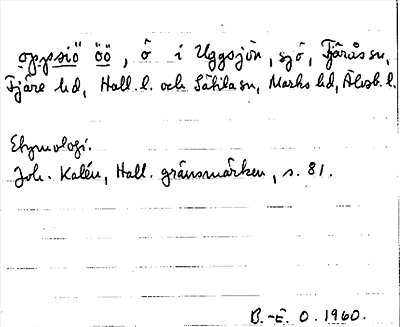 oppsiö öö, ö i Uggsjön, sjö, Fjärås sn,
Fjäre hd, Hall. l. och Sätila sn, Marks hd, Älvsb. l.
Etymologi.
Joh. Kalén, Hall. gränsmärken, s. 81.
B.-E. O. 1960.